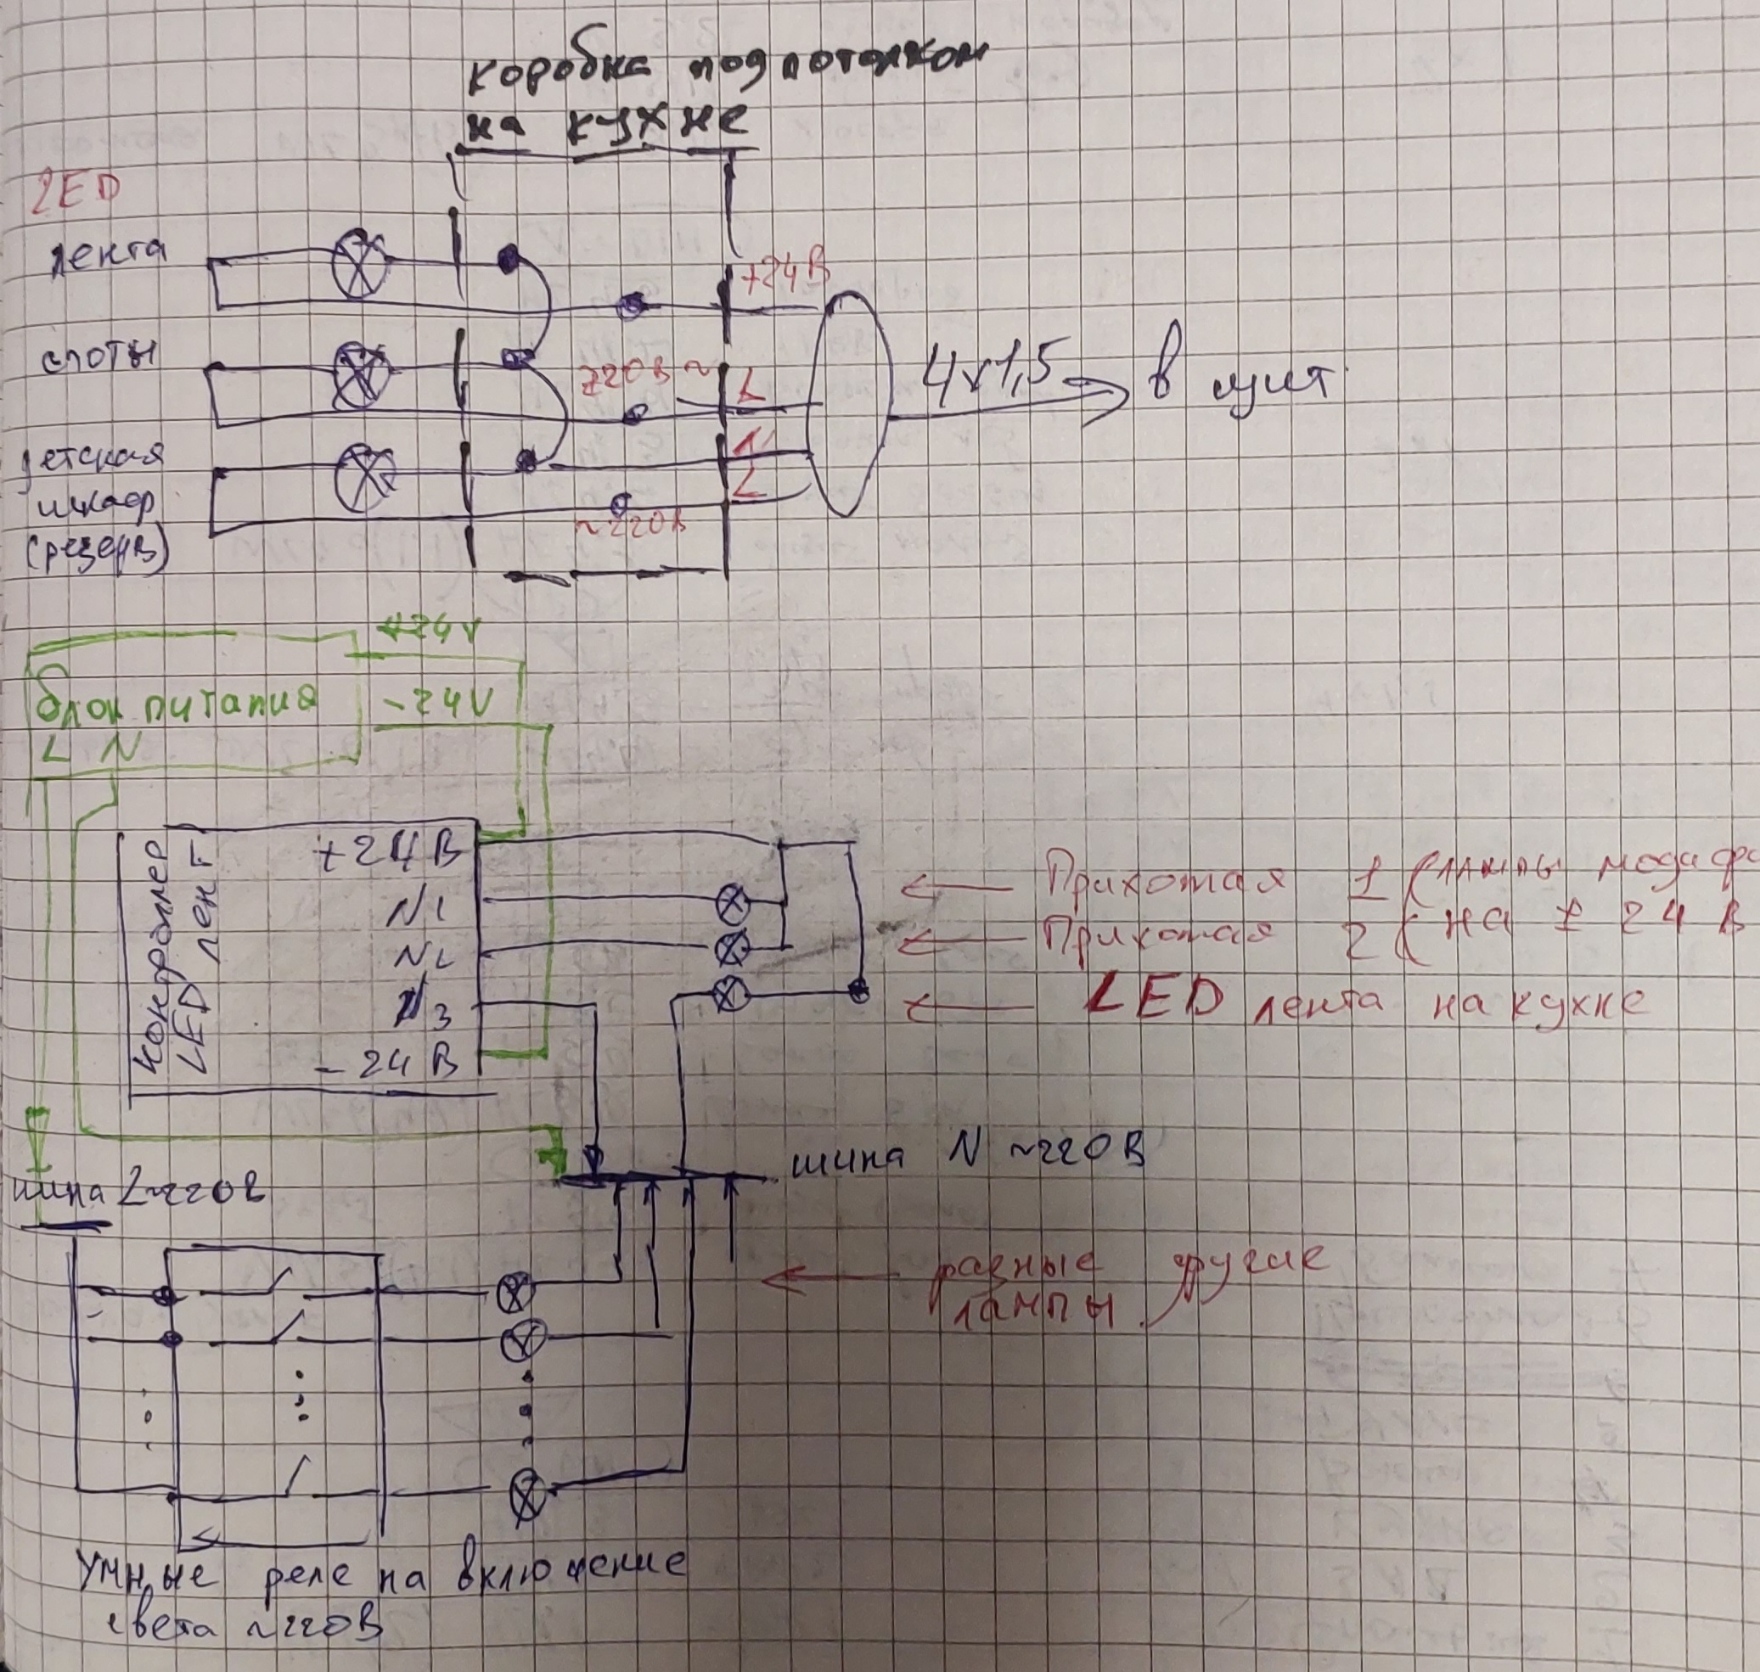 коробка под потолком
на кухне
LED
лента
+24В
споты
~220В ~
L
4x1,5
в щит
N
детская
шкаф
(резерв)
L
~220В
+24V
блок питания
-24V
L N
контроллер
LED лент
+24В
N1
N2
N3
-24В
Прихожая 1 (лампы
Прихожая 2 (на 24В
LED лента на кухне
шина N ~220В
шина L ~220В
разные другие
лампы
Умные реле на включение
света ~220В